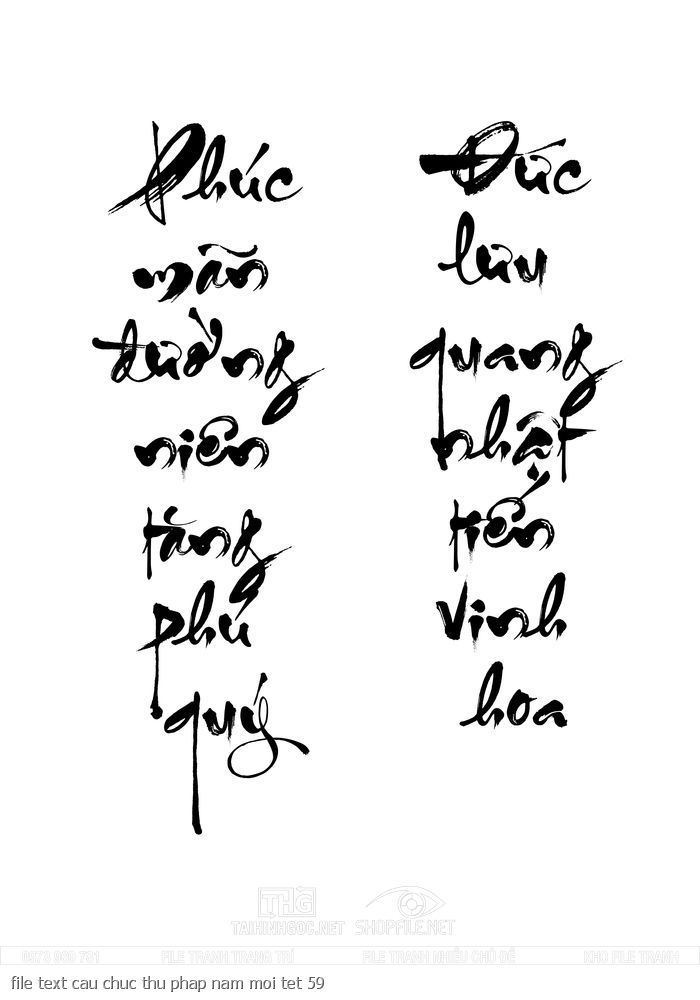 Phúc
mãn
đường
niên
tăng
phú
quý
Đức
lưu
quang
nhật
tiến
vinh
hoa
THG
TAIHINHGOC.NET
SHOPFILE.NET
0978 989 791
FILE TRANH TRANG TRÍ
FILE TRANH NHIỀU CHỦ ĐỀ
KHO FILE TRANH
file text cau chuc thu phap nam moi tet 59